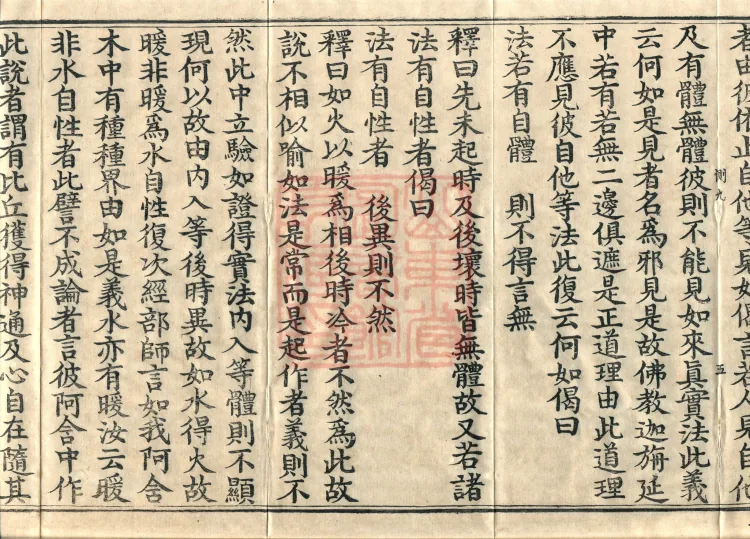 者由彼依止自他等見如偈言若人見自他
惻九　五
及有體無體彼則不能見如來眞實法此義
云何如是見者名爲邪見是故佛教迦旃延
中若有若無二邊俱遮是正道理由此道理
不應見彼自他等法此復云何如偈曰
法若有自體　則不得言無
釋曰先未起時及後壞時皆無體故又若諸
法有自性者偈曰
法有自性者　後異則不然
釋曰如火以暖爲相後時冷者不然爲此故
說不相似喻如法是常而是起作者義則不
然此中立驗如證得實法内入等體則不顯
現何以故由内入等後時異故如水得火故
暖非暖爲水自性復次經部師言如我阿舍
木中有種種界由如是義水亦有暖汝云暖
非水自性者此譬不成論者言彼阿舍中作
此說者謂有比丘獲得神通及心自在隨其